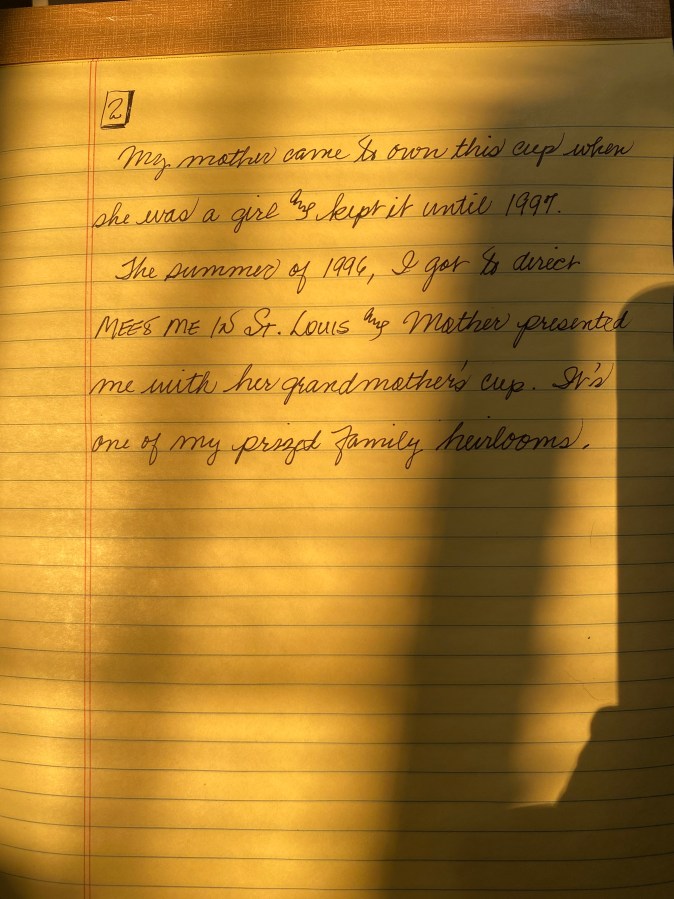 2
My mother came to own this cup when
she was a girl and kept it until 1997.
The summer of 1996, I got to direct
MEET ME IN ST. LOUIS and Mother presented
me with her grandmother's cup. It's
one of my prized family heirlooms.